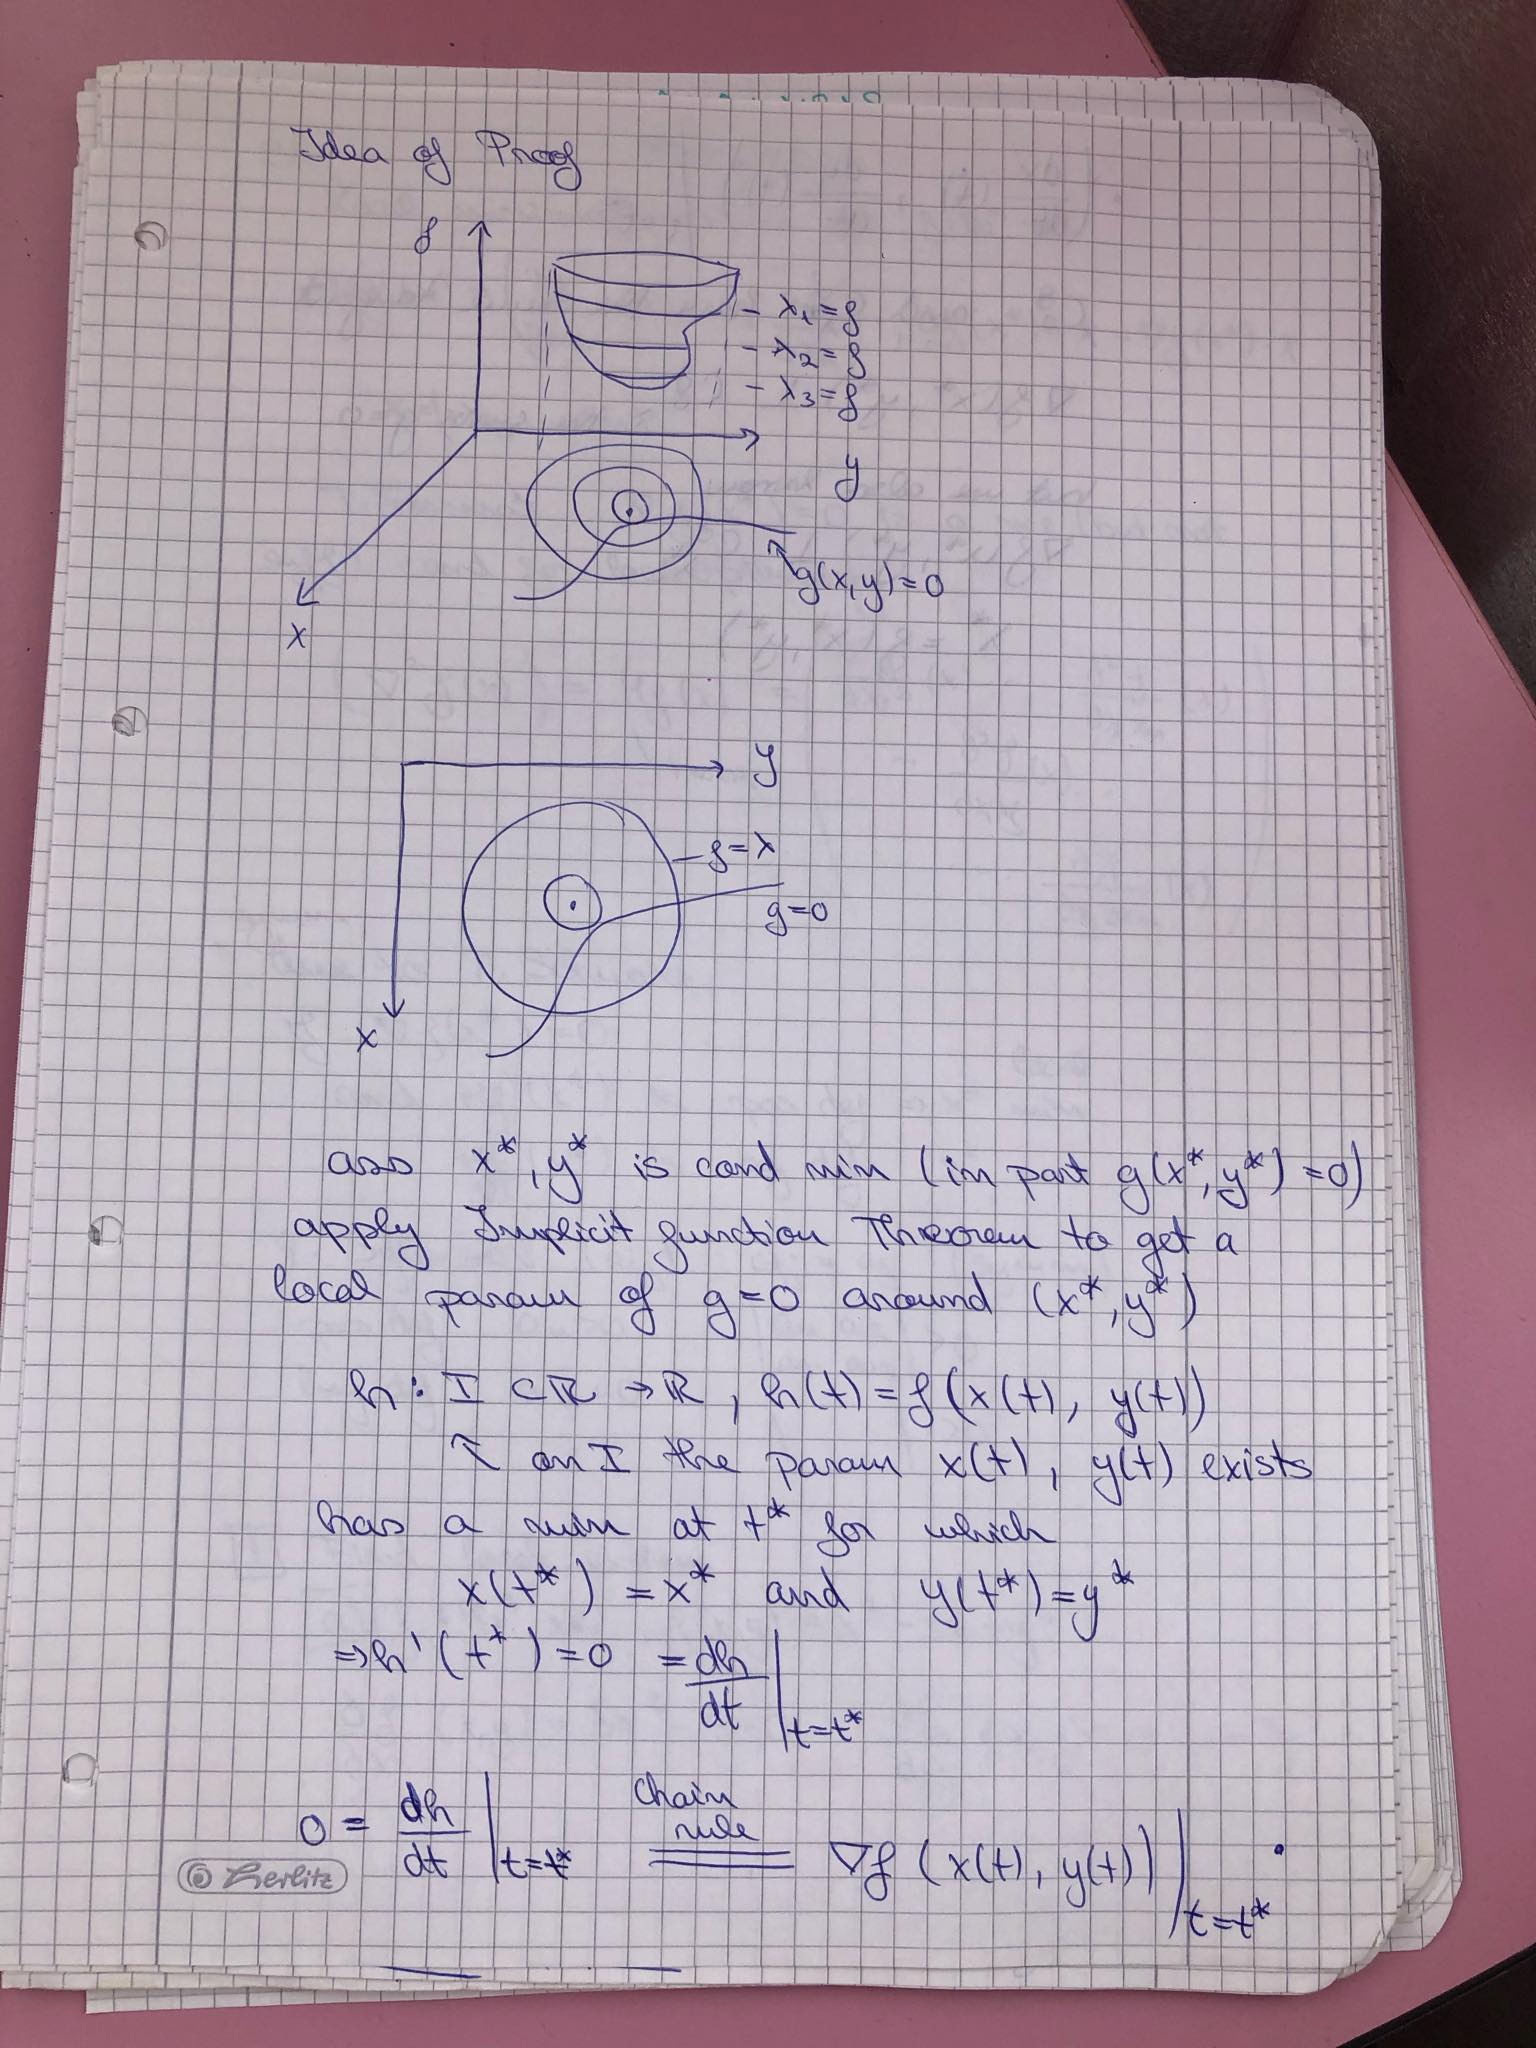 Idea of Proof
f
- λ₁ = f
- λ₂ = f
- λ₃ = f
y
g(x,y) = 0
x
y
- f = λ
g = 0
x
ass x*, y* is cond min (in part g(x*, y*) = 0)
apply Implicit function Theorem to get a
local param of g = 0 around (x*, y*)
h : I ⊂ ℝ → ℝ , h(t) = f(x(t), y(t))
↖ on I the param x(t), y(t) exists
has a min at t* for which
x(t*) = x* and y(t*) = y*
⇒ h'(t*) = 0 = dh/dt |t=t*
Chain
rule
0 = dh/dt |t=t* = ∇f (x(t), y(t)) |t=t* ·
Herlitz